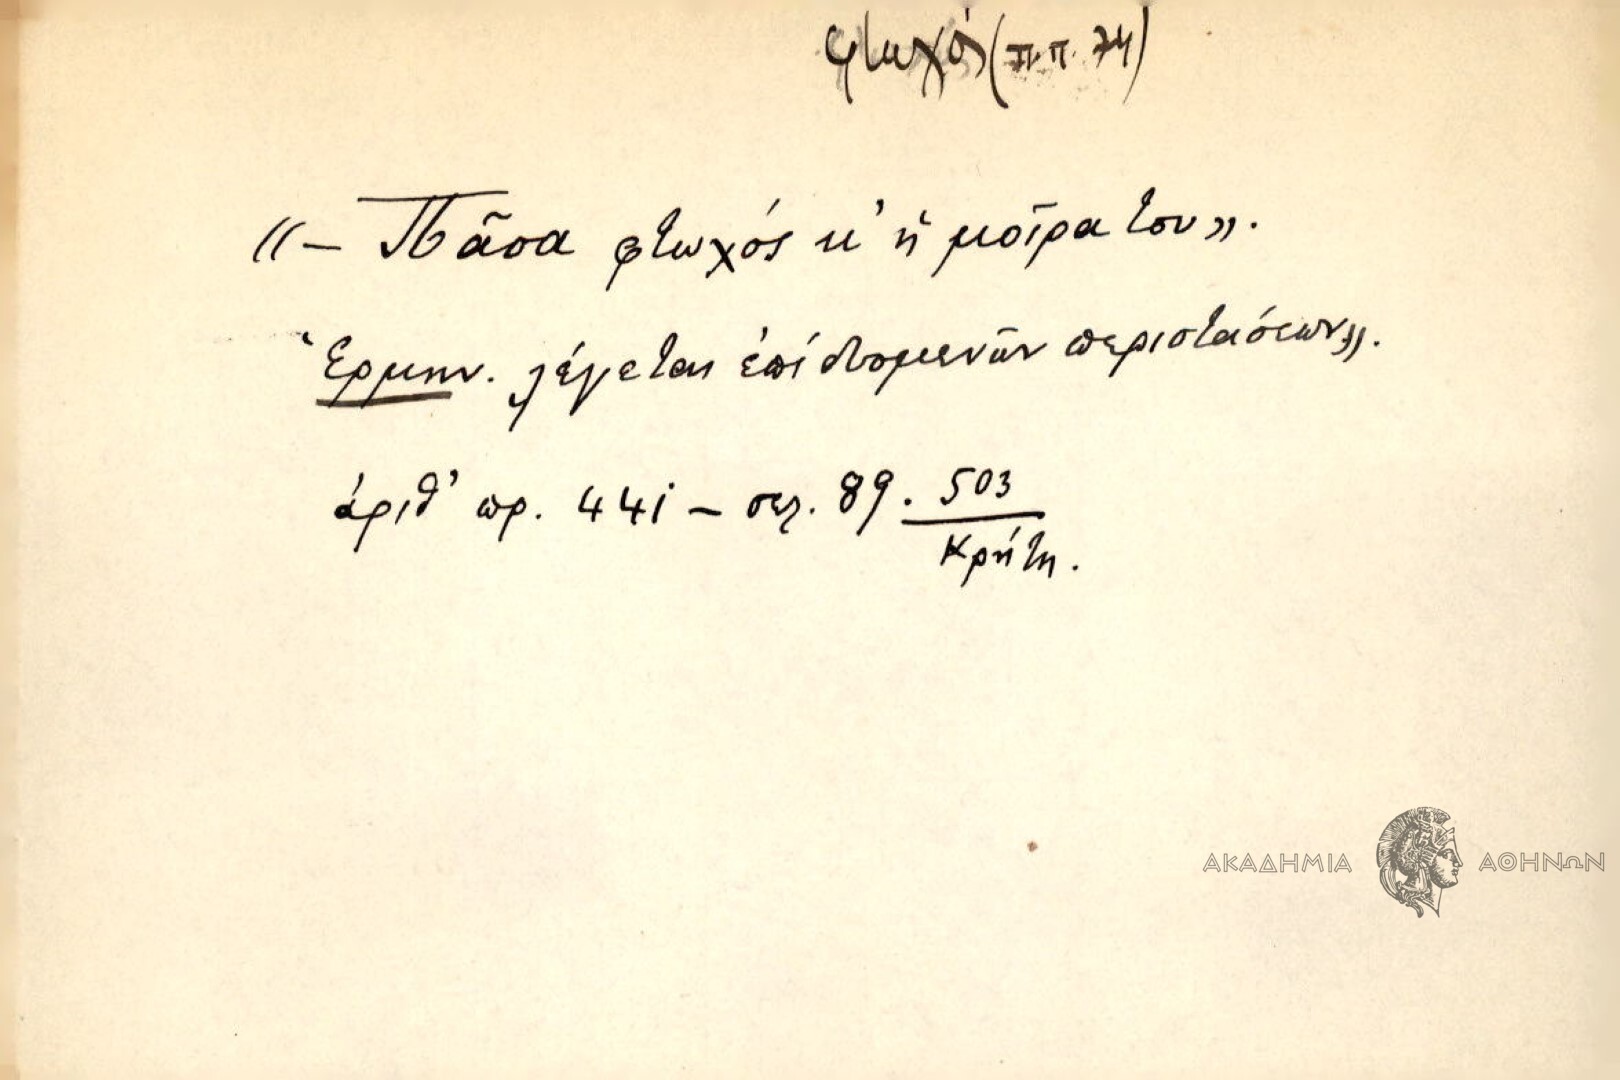 φτωχός (Π.Π. 74)
«– Πᾶσα φτωχός κ' ἡ μοῖρα του».
Ἑρμην. λέγεται ἐπί περιστάσεων».
ἀριθ' πρ. 441 – σελ. 89. 503
Κρήτη.
ΑΚΑΔΗΜΙΑ ΑΘΗΝΩΝ